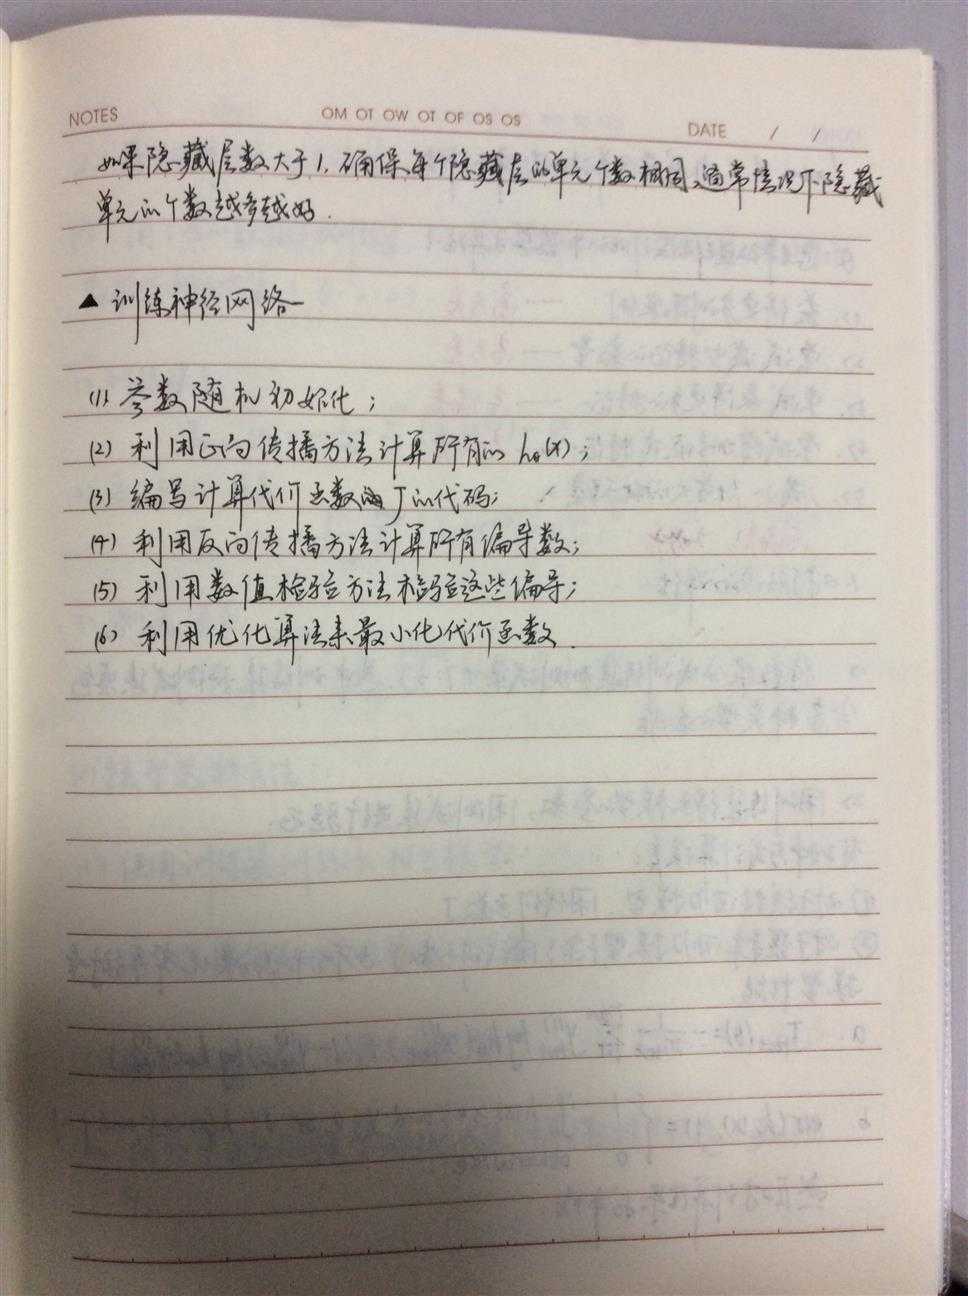 NOTES
OM OT OW OT OF OS OS
DATE / /
如果隐藏层数大于1,确保每个隐藏层的单元个数相同,通常情况下隐藏
单元的个数越多越好.
▲ 训练神经网络
(1) 参数随机初始化;
(2) 利用正向传播方法计算所有的 hθ(x);
(3) 编写计算代价函数 J 的代码;
(4) 利用反向传播方法计算所有偏导数;
(5) 利用数值检验方法检验这些偏导;
(6) 利用优化算法来最小化代价函数.